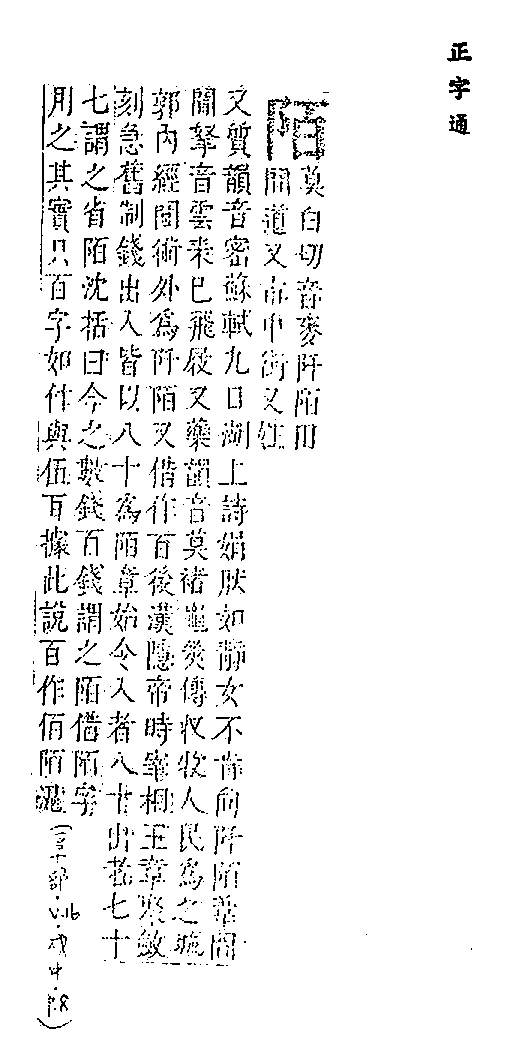 正字通
陌
莫白切音麥阡陌田
間道又市中街又姓
又質韻音密蘇軾九日湖上詩娟肰如靜女不肯向阡陌詩
閒拏音雲来已飛殷又藥韻音莫褚災傳収牧人民為之
郭內經閭術外為阡陌又借作百後漢隱帝時宰相王章聚斂
刻急舊制錢出入皆以八十為陌章始令入者八十出者七十
七謂之省陌沈括曰今之數錢百錢謂之陌借陌字
用之其實只百字如什與伍耳據此說百作佰陌